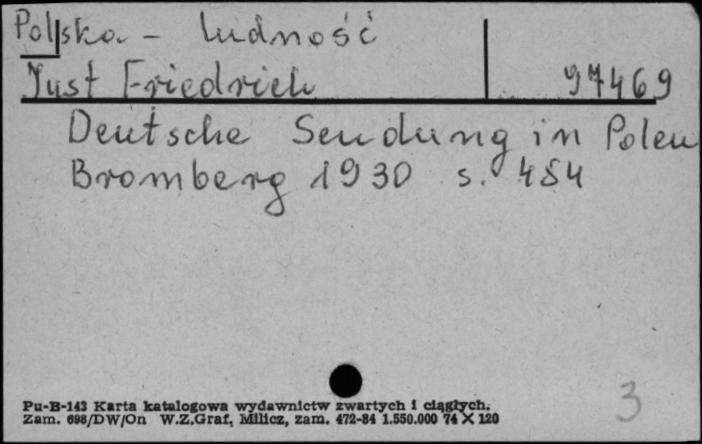 Polska - ludność
Just Friedrich 97469
Deutsche Sendung in Polen
Bromberg 1930 s. 484
3
Pu-B-143 Karta katalogowa wydawnictw zwartych i ciągłych.
Zam. 698/DW/On W.Z.Graf, Milicz, zam. 472-84 1.550.000 74 X 120